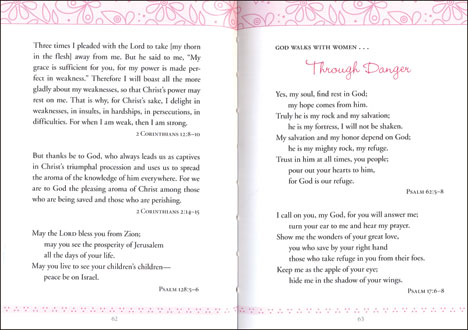 Three times I pleaded with the Lord to take [my thorn
in the flesh] away from me. But he said to me, “My
grace is sufficient for you, for my power is made per-
fect in weakness.” Therefore I will boast all the more
gladly about my weaknesses, so that Christ’s power may
rest on me. That is why, for Christ’s sake, I delight in
weaknesses, in insults, in hardships, in persecutions, in
difficulties. For when I am weak, then I am strong.
2 Corinthians 12:8–10
But thanks be to God, who always leads us as captives
in Christ’s triumphal procession and uses us to spread
the aroma of the knowledge of him everywhere. For we
are to God the pleasing aroma of Christ among those
who are being saved and those who are perishing.
2 Corinthians 2:14–15
May the LORD bless you from Zion;
may you see the prosperity of Jerusalem
all the days of your life.
May you live to see your children’s children—
peace be on Israel.
Psalm 128:5–6
62
GOD WALKS WITH WOMEN . . .
Through Danger
Yes, my soul, find rest in God;
my hope comes from him.
Truly he is my rock and my salvation;
he is my fortress, I will not be shaken.
My salvation and my honor depend on God;
he is my mighty rock, my refuge.
Trust in him at all times, you people;
pour out your hearts to him,
for God is our refuge.
Psalm 62:5–8
I call on you, my God, for you will answer me;
turn your ear to me and hear my prayer.
Show me the wonders of your great love,
you who save by your right hand
those who take refuge in you from their foes.
Keep me as the apple of your eye;
hide me in the shadow of your wings.
Psalm 17:6–8
63